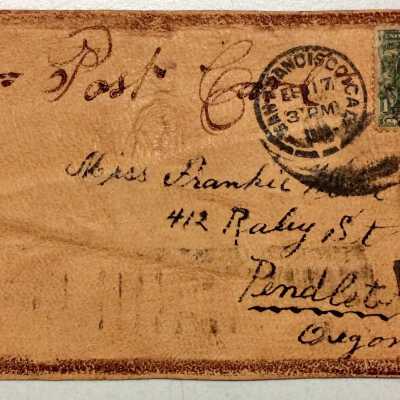 Post Ca
SAN FRANCISCO, CAL.
FEB 17
3 PM
Miss Frankie
412 Raley St
Pendlet
Oregon